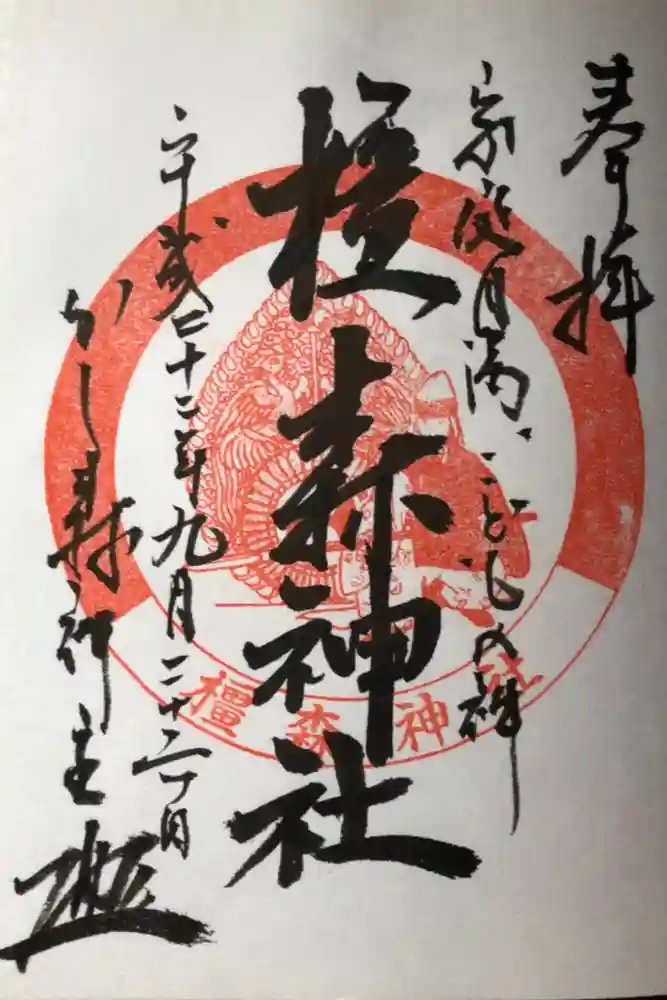 奉拝
家庭円満、こどもの神
橿森神社
平成二十二年九月二十六日
かし森神主
橿森神社